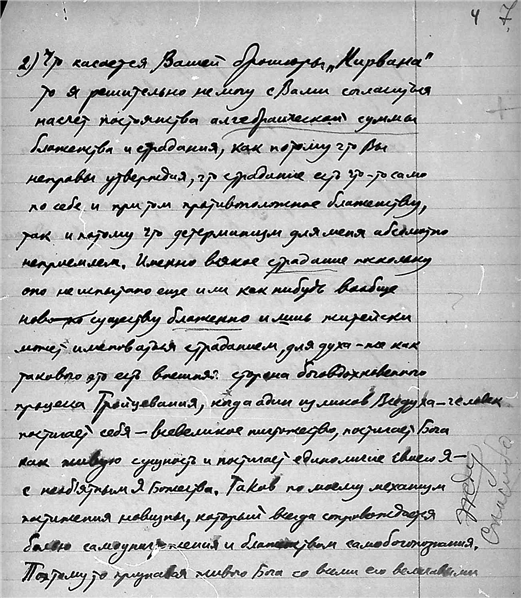 4
2) Что касается Вашей брошюры „Нирвана“
то я решительно не могу с Вами согласиться
насчёт постоянства алгебраической суммы
блаженства и страдания, как потому что Вы
неправы утверждая, что страдание есть что-то само
по себе и при том противоположное блаженству,
так и потому что детерминизм для меня абсолютно
неприемлем. Именно всякое страдание поскольку
оно не испытано ещё или как нибудь вообще
ново по существу блаженно и лишь житейски
может именоваться страданием, для духа-же как
такового это есть внешняя сторона боговдохновенного
процесса Тройцевания, когда один из ликов Вседуха-человек
постигает себя – всевеликое ничтожество, постигает Бога
как живую сущность и постигает единоличие своего Я –
с необъятным Я Божества. Таков по моему механизм
постижения новизны, который всегда сопровождается
болью самоуничижения и блаженством самобогопознания.
Поэтому то признавая живого Бога со всеми его величавыми
жду